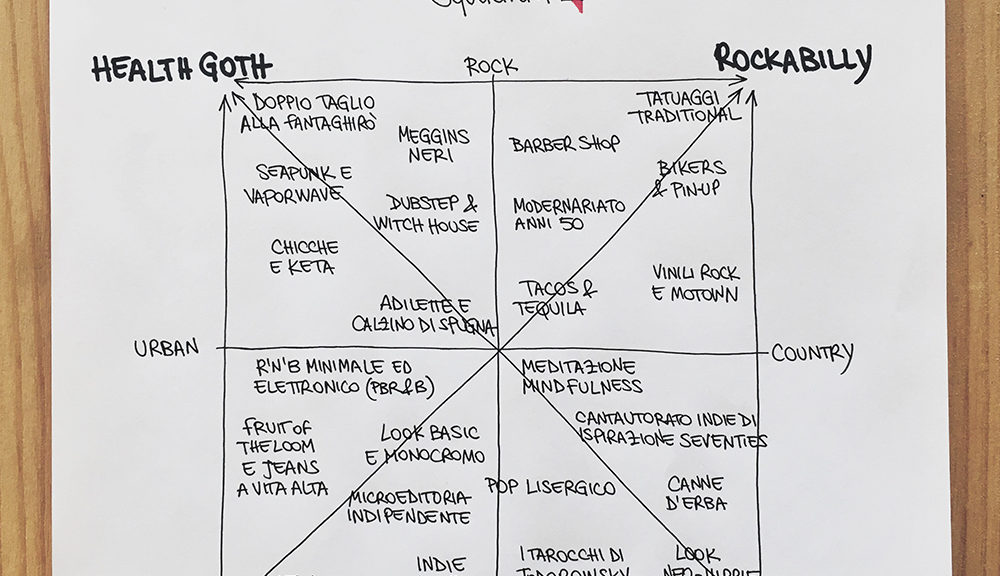 HEALTH GOTH
ROCK
ROCKABILLY
DOPPIO TAGLIO
ALLA FANTAGHIRÒ
MEGGINS
NERI
SEAPUNK E
VAPORWAVE
DUBSTEP &
WITCH HOUSE
CHICCHE
E KETA
ADILETTE E
CALZINO DI SPUGNA
TATUAGGI
TRADITIONAL
BARBER SHOP
BIKERS
& PIN-UP
MODERNARIATO
ANNI 50
VINILI ROCK
E MOTOWN
TACOS &
TEQUILA
URBAN
COUNTRY
R'N'B MINIMALE ED
ELETTRONICO (PBR&B)
FRUIT OF
THE LOOM
E JEANS
A VITA ALTA
LOOK BASIC
E MONOCROMO
MICROEDITORIA
INDIPENDENTE
INDIE
MEDITAZIONE
MINDFULNESS
CANTAUTORATO INDIE DI
ISPIRAZIONE SEVENTIES
POP LISERGICO
CANNE
D'ERBA
I TAROCCHI DI
LOOK